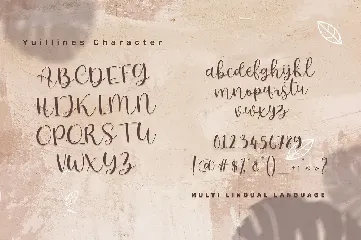 Yuillines Character
ABCDEFG
HIJKLMN
OPQRSTU
VWXYZ
abcdefghijkl
mnopqrstu
vwxyz
0123456789
MULTI LINGUAL LANGUAGE